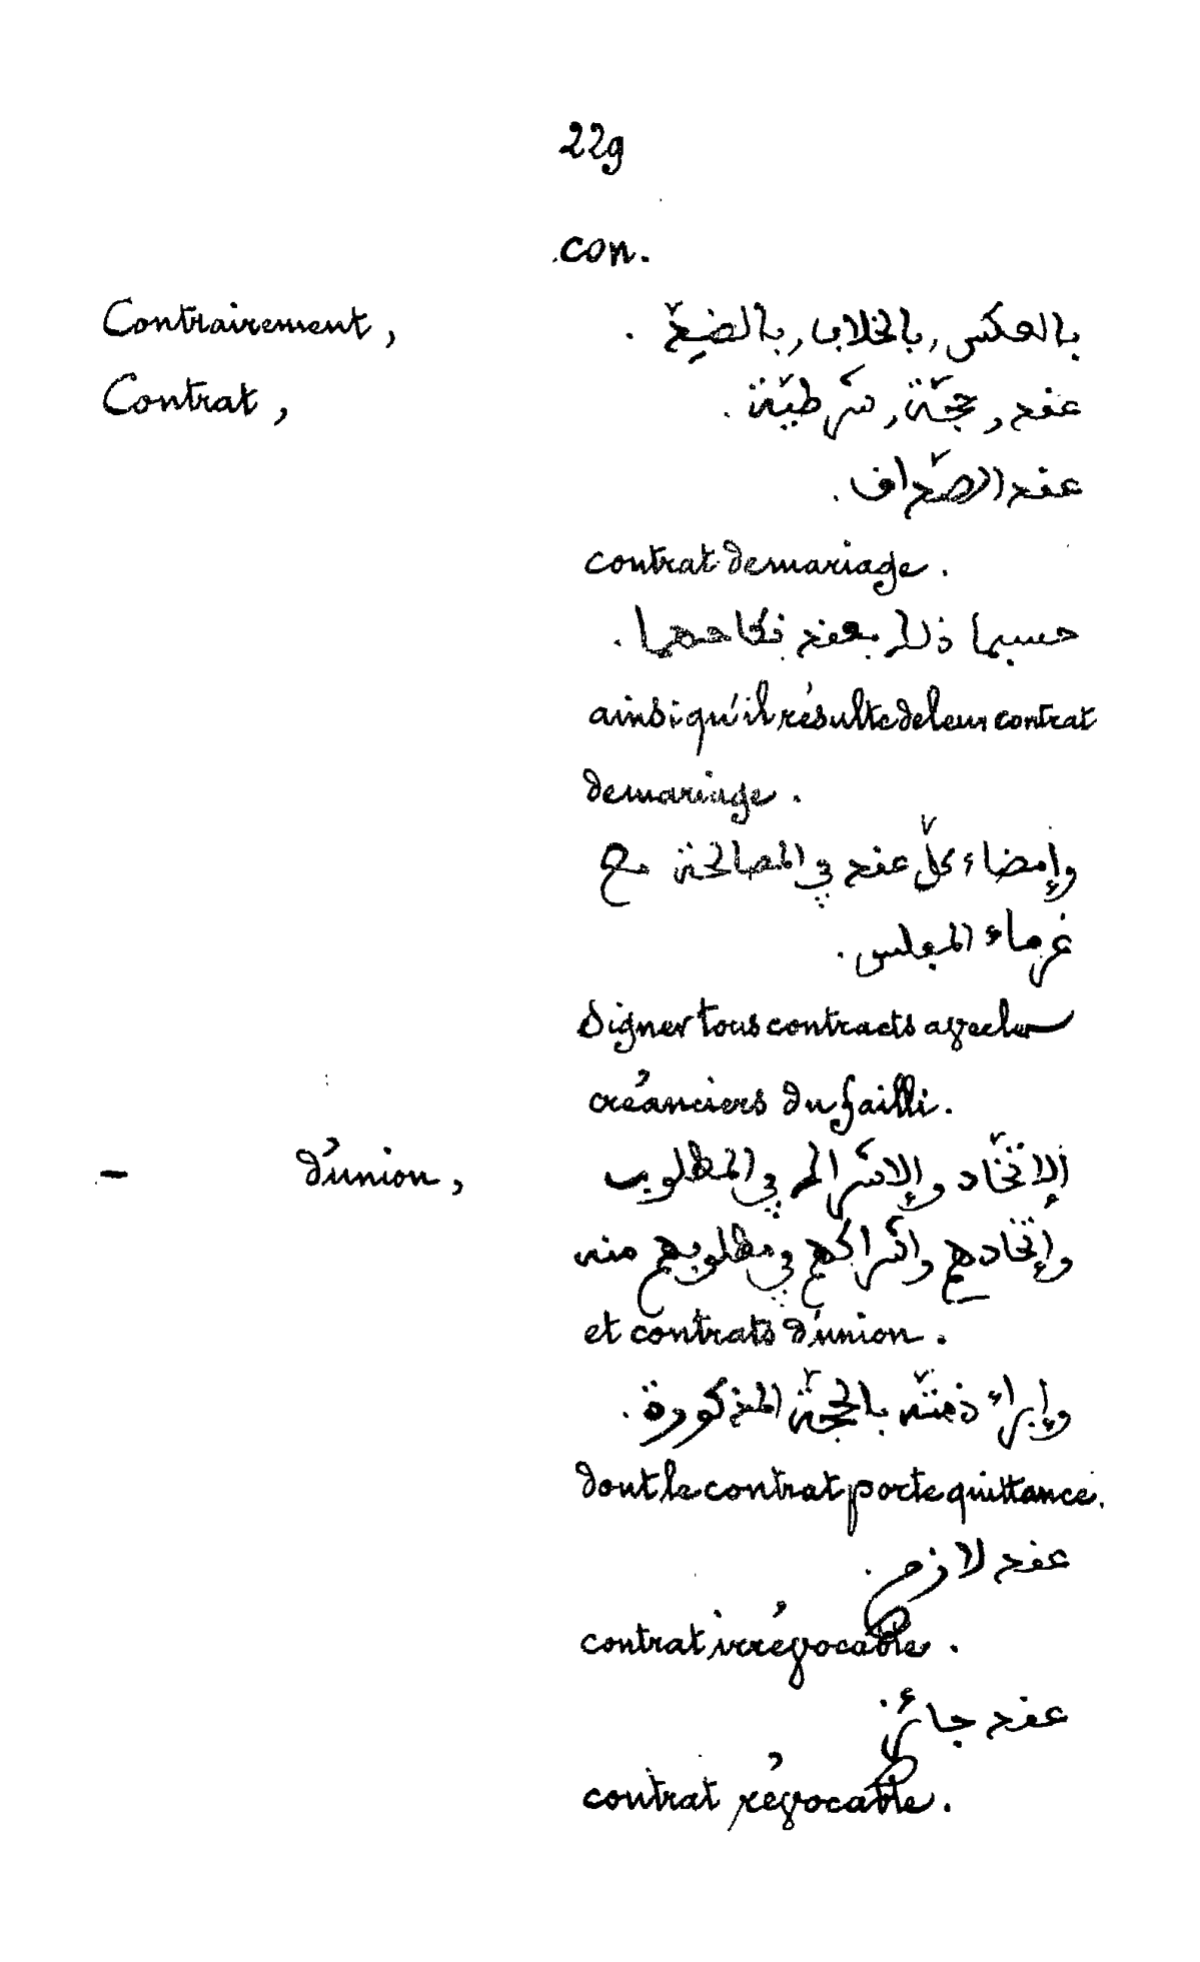 229
con.
Contrairement, بالعكس, بالخلاف, بالضدّ .
Contrat, عقد, حجّة, شرطيّة .
عقد الصّداق .
contrat de mariage .
حسبما ذلك بعقد نكاحهما .
ainsi qu'il résulte de leur contrat
de mariage .
وإمضاء كلّ عقد في المصالحة مع
غرماء المفلس .
Signer tous contracts avec les
créanciers du failli .
— d'union, الإتّحاد والإشتراك في المطلوب
وإتّحادهم واشتراكهم في مطلوبهم منه
et contrats d'union .
وإبراء ذمّته بالحجّة المذكورة .
dont le contrat porte quittance .
عقد لازم .
contrat irrévocable .
عقد جائز .
contrat révocable .